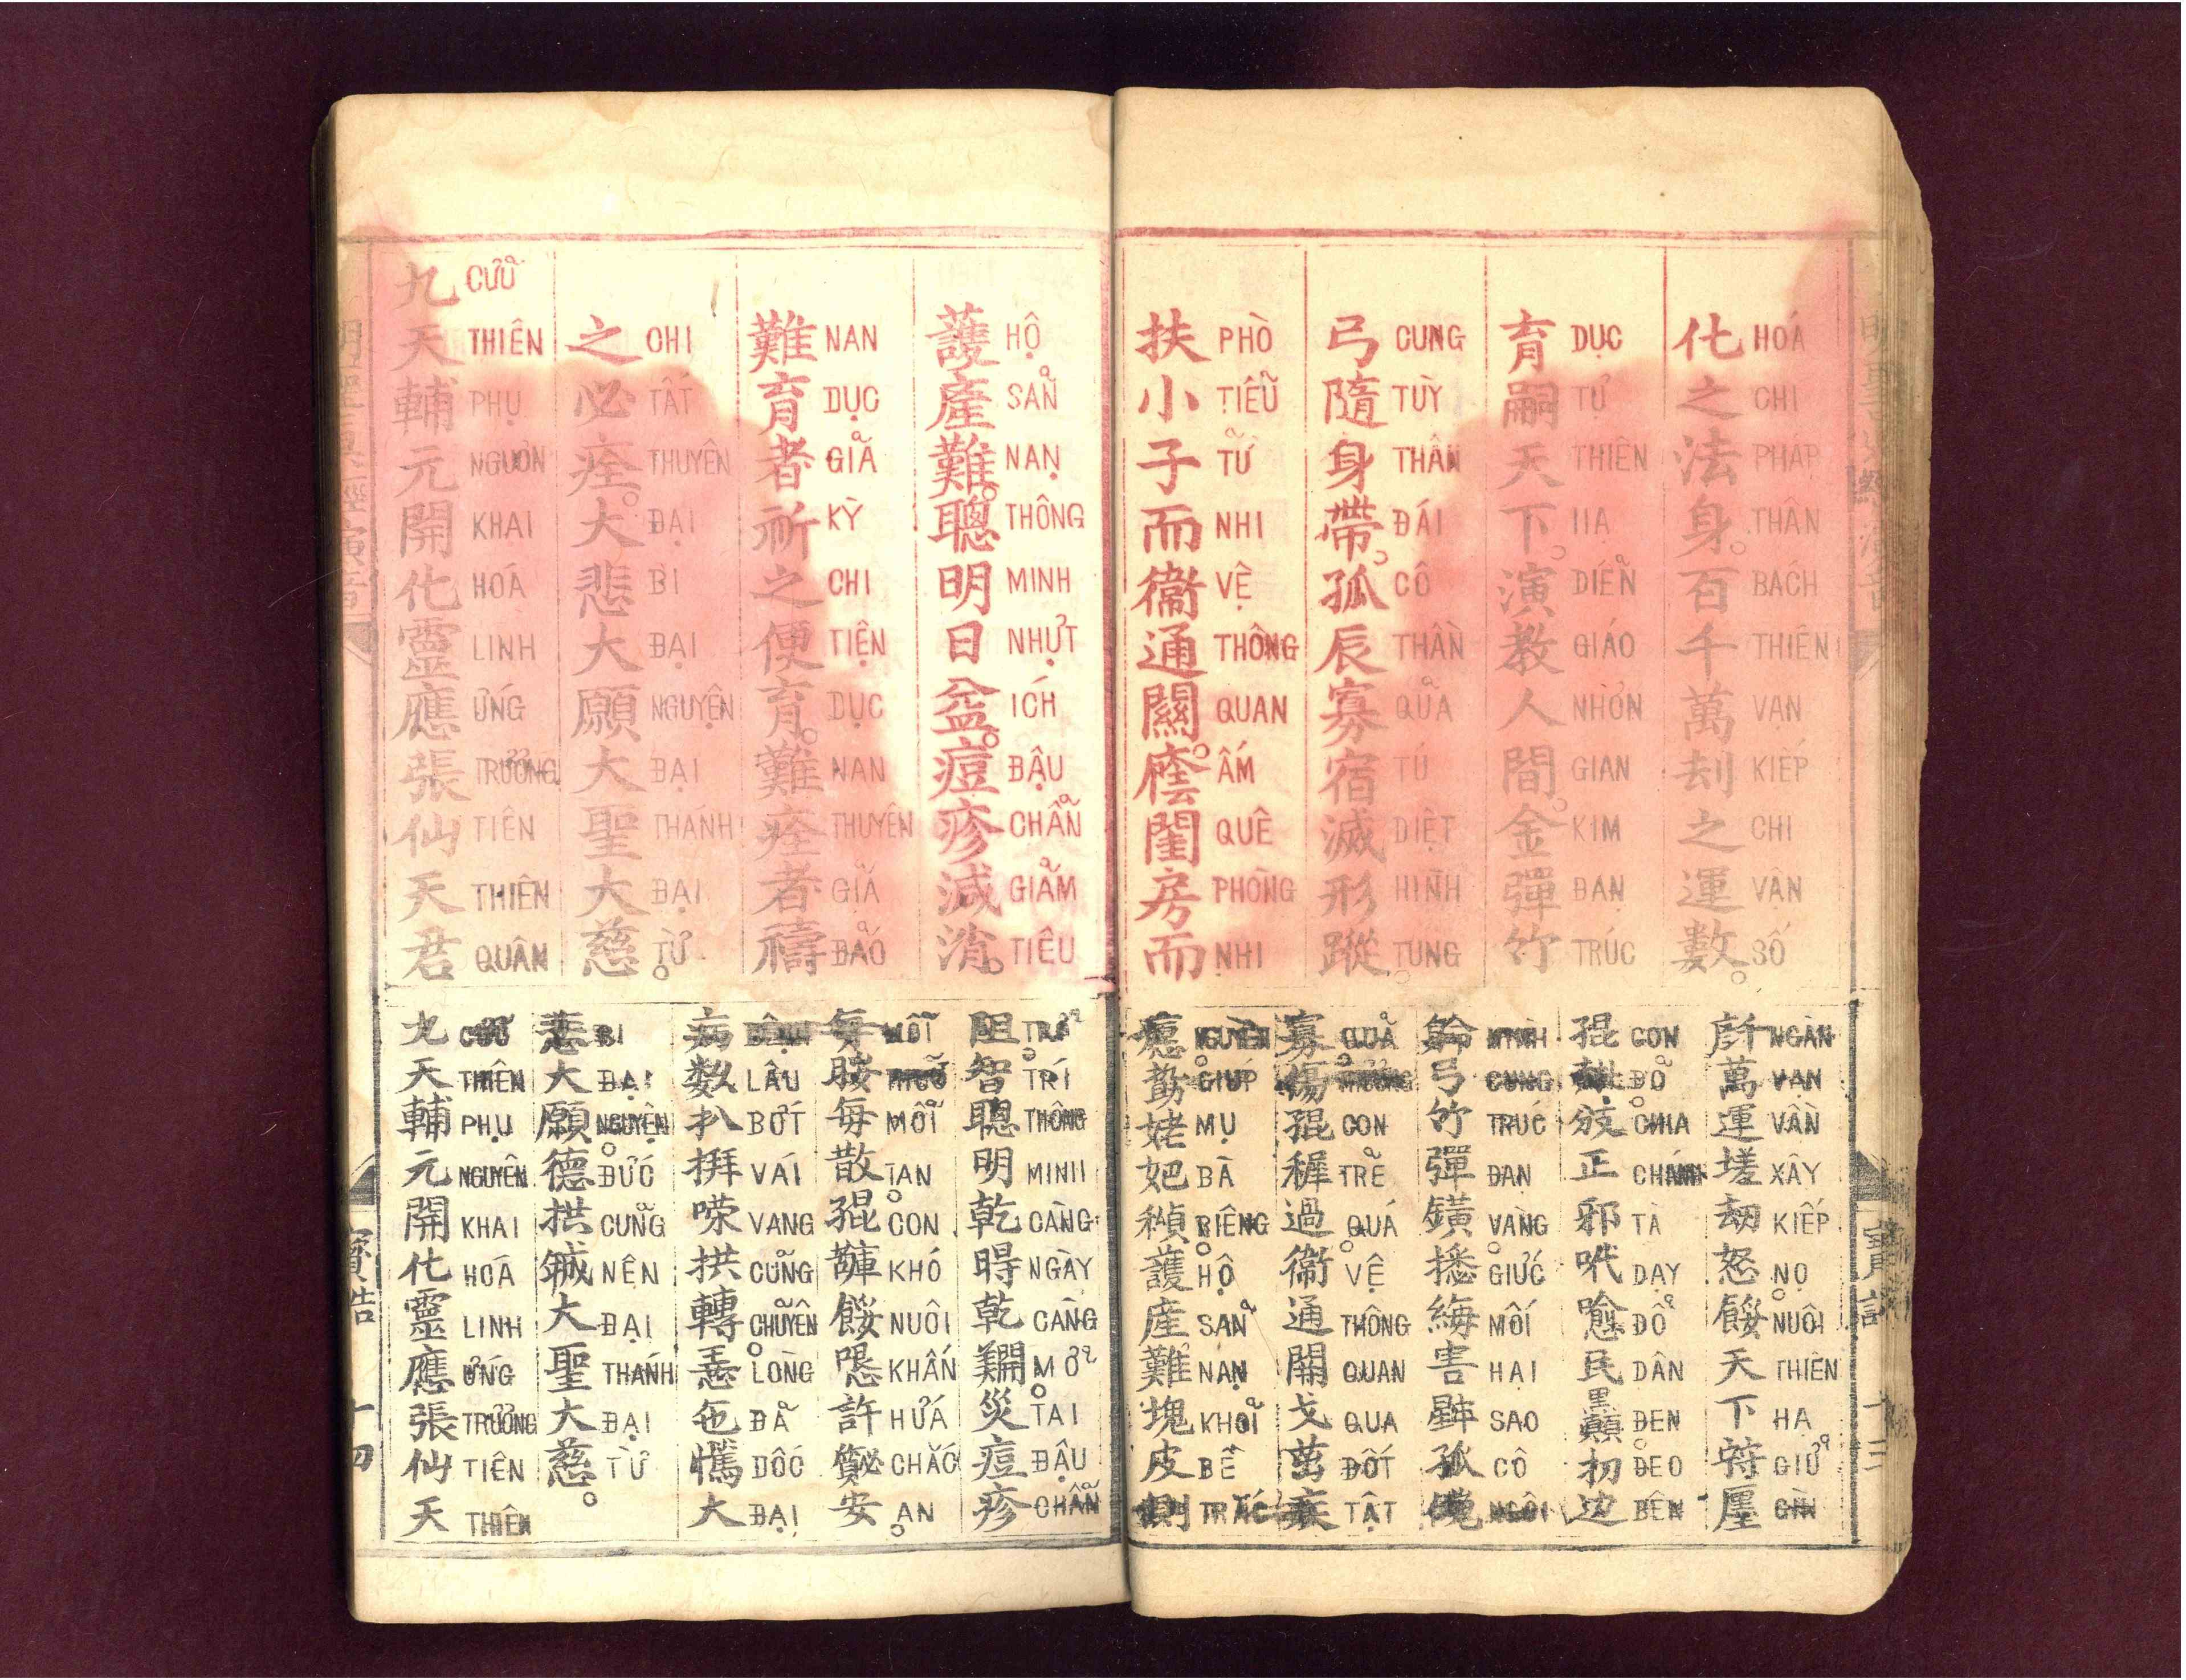 化之法身。百千萬刼之運數。
HOÁ CHI PHÁP THÂN BÁCH THIÊN VẠN KIẾP CHI VẬN SỐ
育嗣天下。演教人間。金彈竹
DỤC TỰ THIÊN HẠ DIỄN GIÁO NHƠN GIAN KIM ĐẠN TRÚC
弓隨身帶。孤辰寡宿滅形蹤。
CUNG TÙY THÂN ĐÁI CÔ THẦN QUẢ TÚ DIỆT HÌNH TUNG
扶小子而衞通關。閨房而
PHÒ TIỂU TỬ NHI VỆ THÔNG QUAN ẤM QUÊ PHÒNG NHI
護產難。聰明日益。痘疹減消。
HỘ SẢN NẠN THÔNG MINH NHỰT ÍCH ĐẬU CHẨN GIẢM TIÊU
難育者祈之便育。難痊者禱
NAN DỤC GIẢ KỲ CHI TIỆN DỤC NAN THUYÊN GIẢ ĐẢO
之必痊。大悲大願大聖大慈。
CHI TẤT THUYÊN ĐẠI BI ĐẠI NGUYỆN ĐẠI THÁNH ĐẠI TỪ
九天輔元開化靈應張仙天君
CỬU THIÊN PHỤ NGUƠN KHAI HOÁ LINH ỨNG TRƯƠNG TIÊN THIÊN QUÂN
萬運刼怒餒天下
NGÀN VẠN VẦN XÂY KIẾP NỌ NUÔI THIÊN HẠ GIỮ GÌN
正邪民
CON ĐỎ CHIA CHÁNH TÀ DẠY ĐỖ DÂN ĐEN ĐEO BÊN
弓竹彈害孤
MÌNH CUNG TRÚC ĐẠN VÀNG GIỨC MỐI HẠI SAO CÔ NGÔI
寡傷過衞通開戈
QUẢ THƯƠNG CON TRẺ QUÁ VỆ THÔNG QUAN QUA ĐỐT TẬT
姥護產難塊皮測
NGUYỀN GIÚP MỤ BÀ RIÊNG HỘ SẢN NẠN KHỎI BỀ TRẮC
阻智聰明乾乾災痘疹
TRỞ TRÍ THÔNG MINH CÀNG NGÀY CÀNG MỞ TAI ĐẬU CHẨN
每每散餒許安
MỖI MỖI TAN CON KHÓ NUÔI KHẤN HỨA CHẮC AN
病数拱轉大
BỆNH LÂU BỚT VÁI VANG CŨNG CHUYỂN LÒNG ĐÃ DỐC ĐẠI
悲大願德拱大聖大慈。
BI ĐẠI NGUYỆN ĐỨC CŨNG NÊN ĐẠI THÁNH ĐẠI TỪ
九天輔元開化靈應張仙天
CỬU THIÊN PHỤ NGUYÊN KHAI HOÁ LINH ỨNG TRƯƠNG TIÊN THIÊN